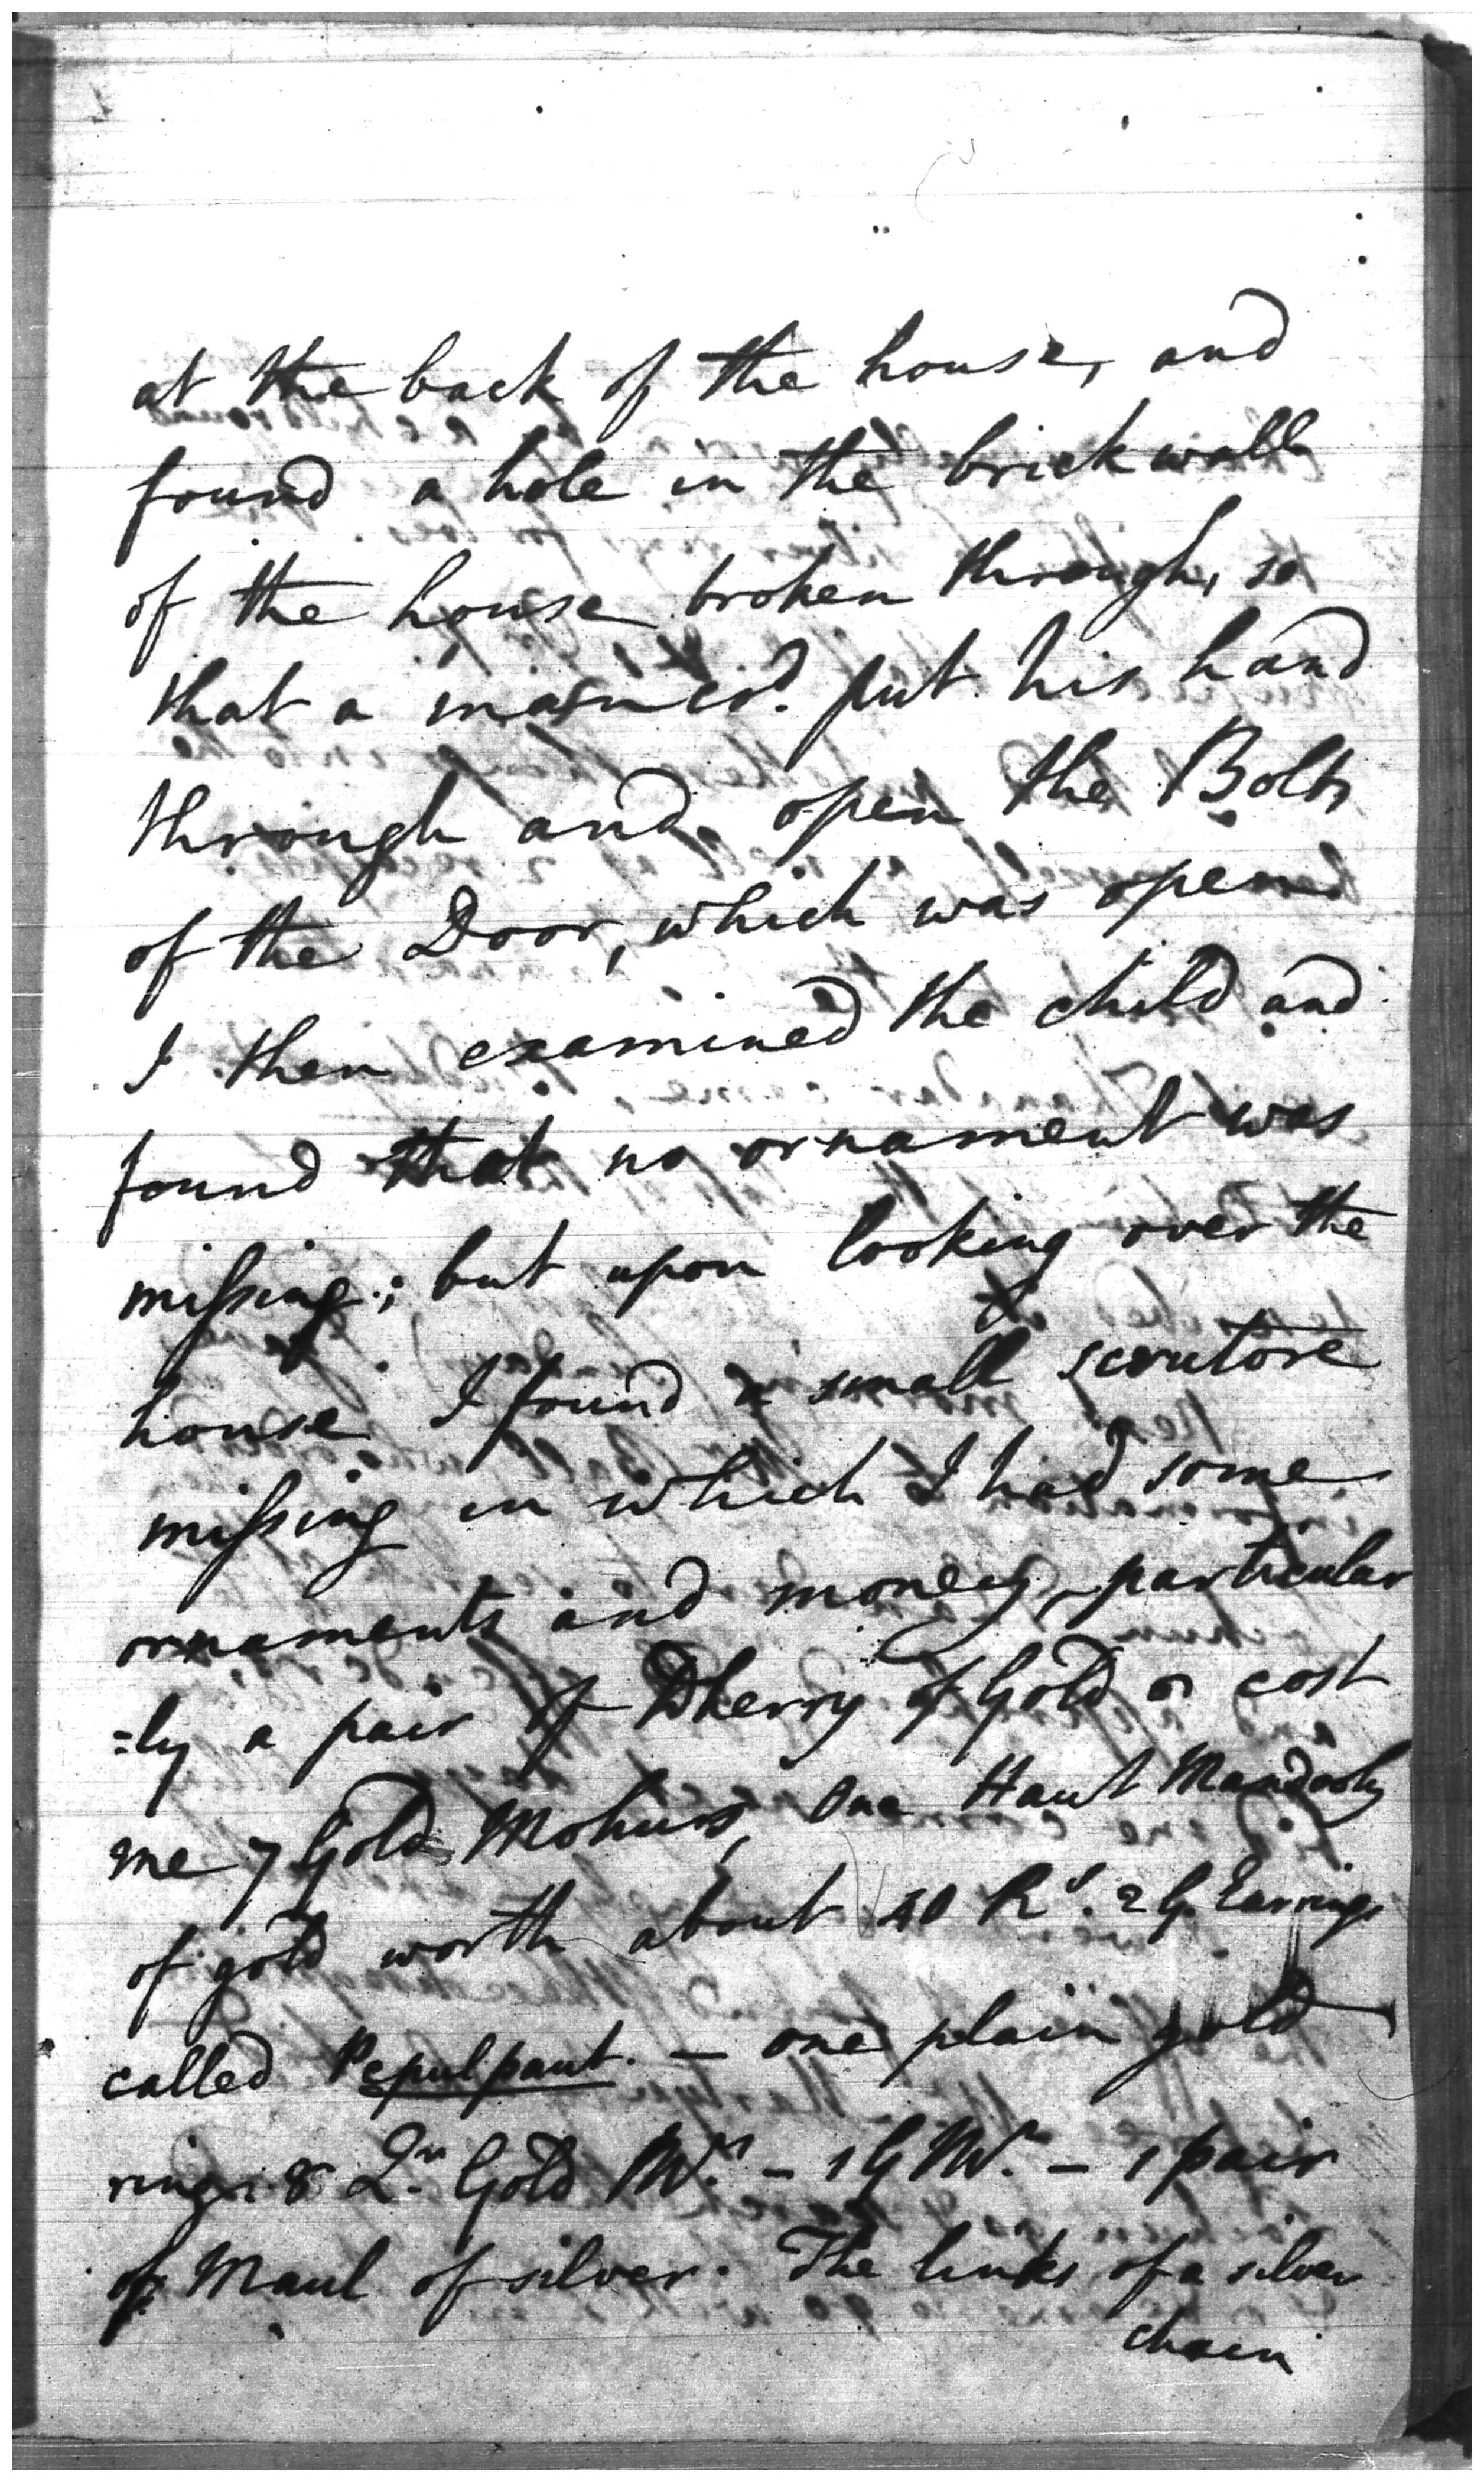 at the back of the house, and
found a hole in the brick wall
of the house broken through, so
that a man cd. put his hand
through and open the Bolts
of the Door, which was opend
I then examined the child and
found that no ornament was
missing; but upon looking over the
house I found a small scrutore
missing in which I had some
ornaments and money, particular
=ly a pair of Dherry of Gold cost
me 7 Gold Mohurs, One Haut
of gold worth about 40 Rs. 2 G. Earrings
called Pepulpaut. — one plain gold
ring & Gold Mrs. — 1 G Mr. — 1 pair
of Maul of silver. The links of a silver
chain